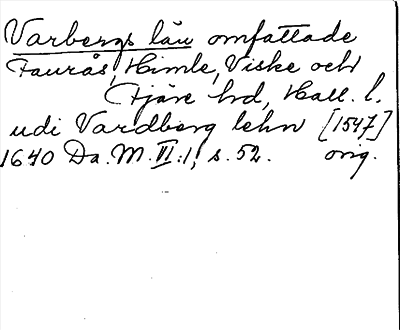 Varbergs län omfattade
Faurås, Himle, Viske och
Fjäre hd, Hall. l.
udi Vardberg lehn [1547]
1640 Da. M. VI:1, s. 52. orig.